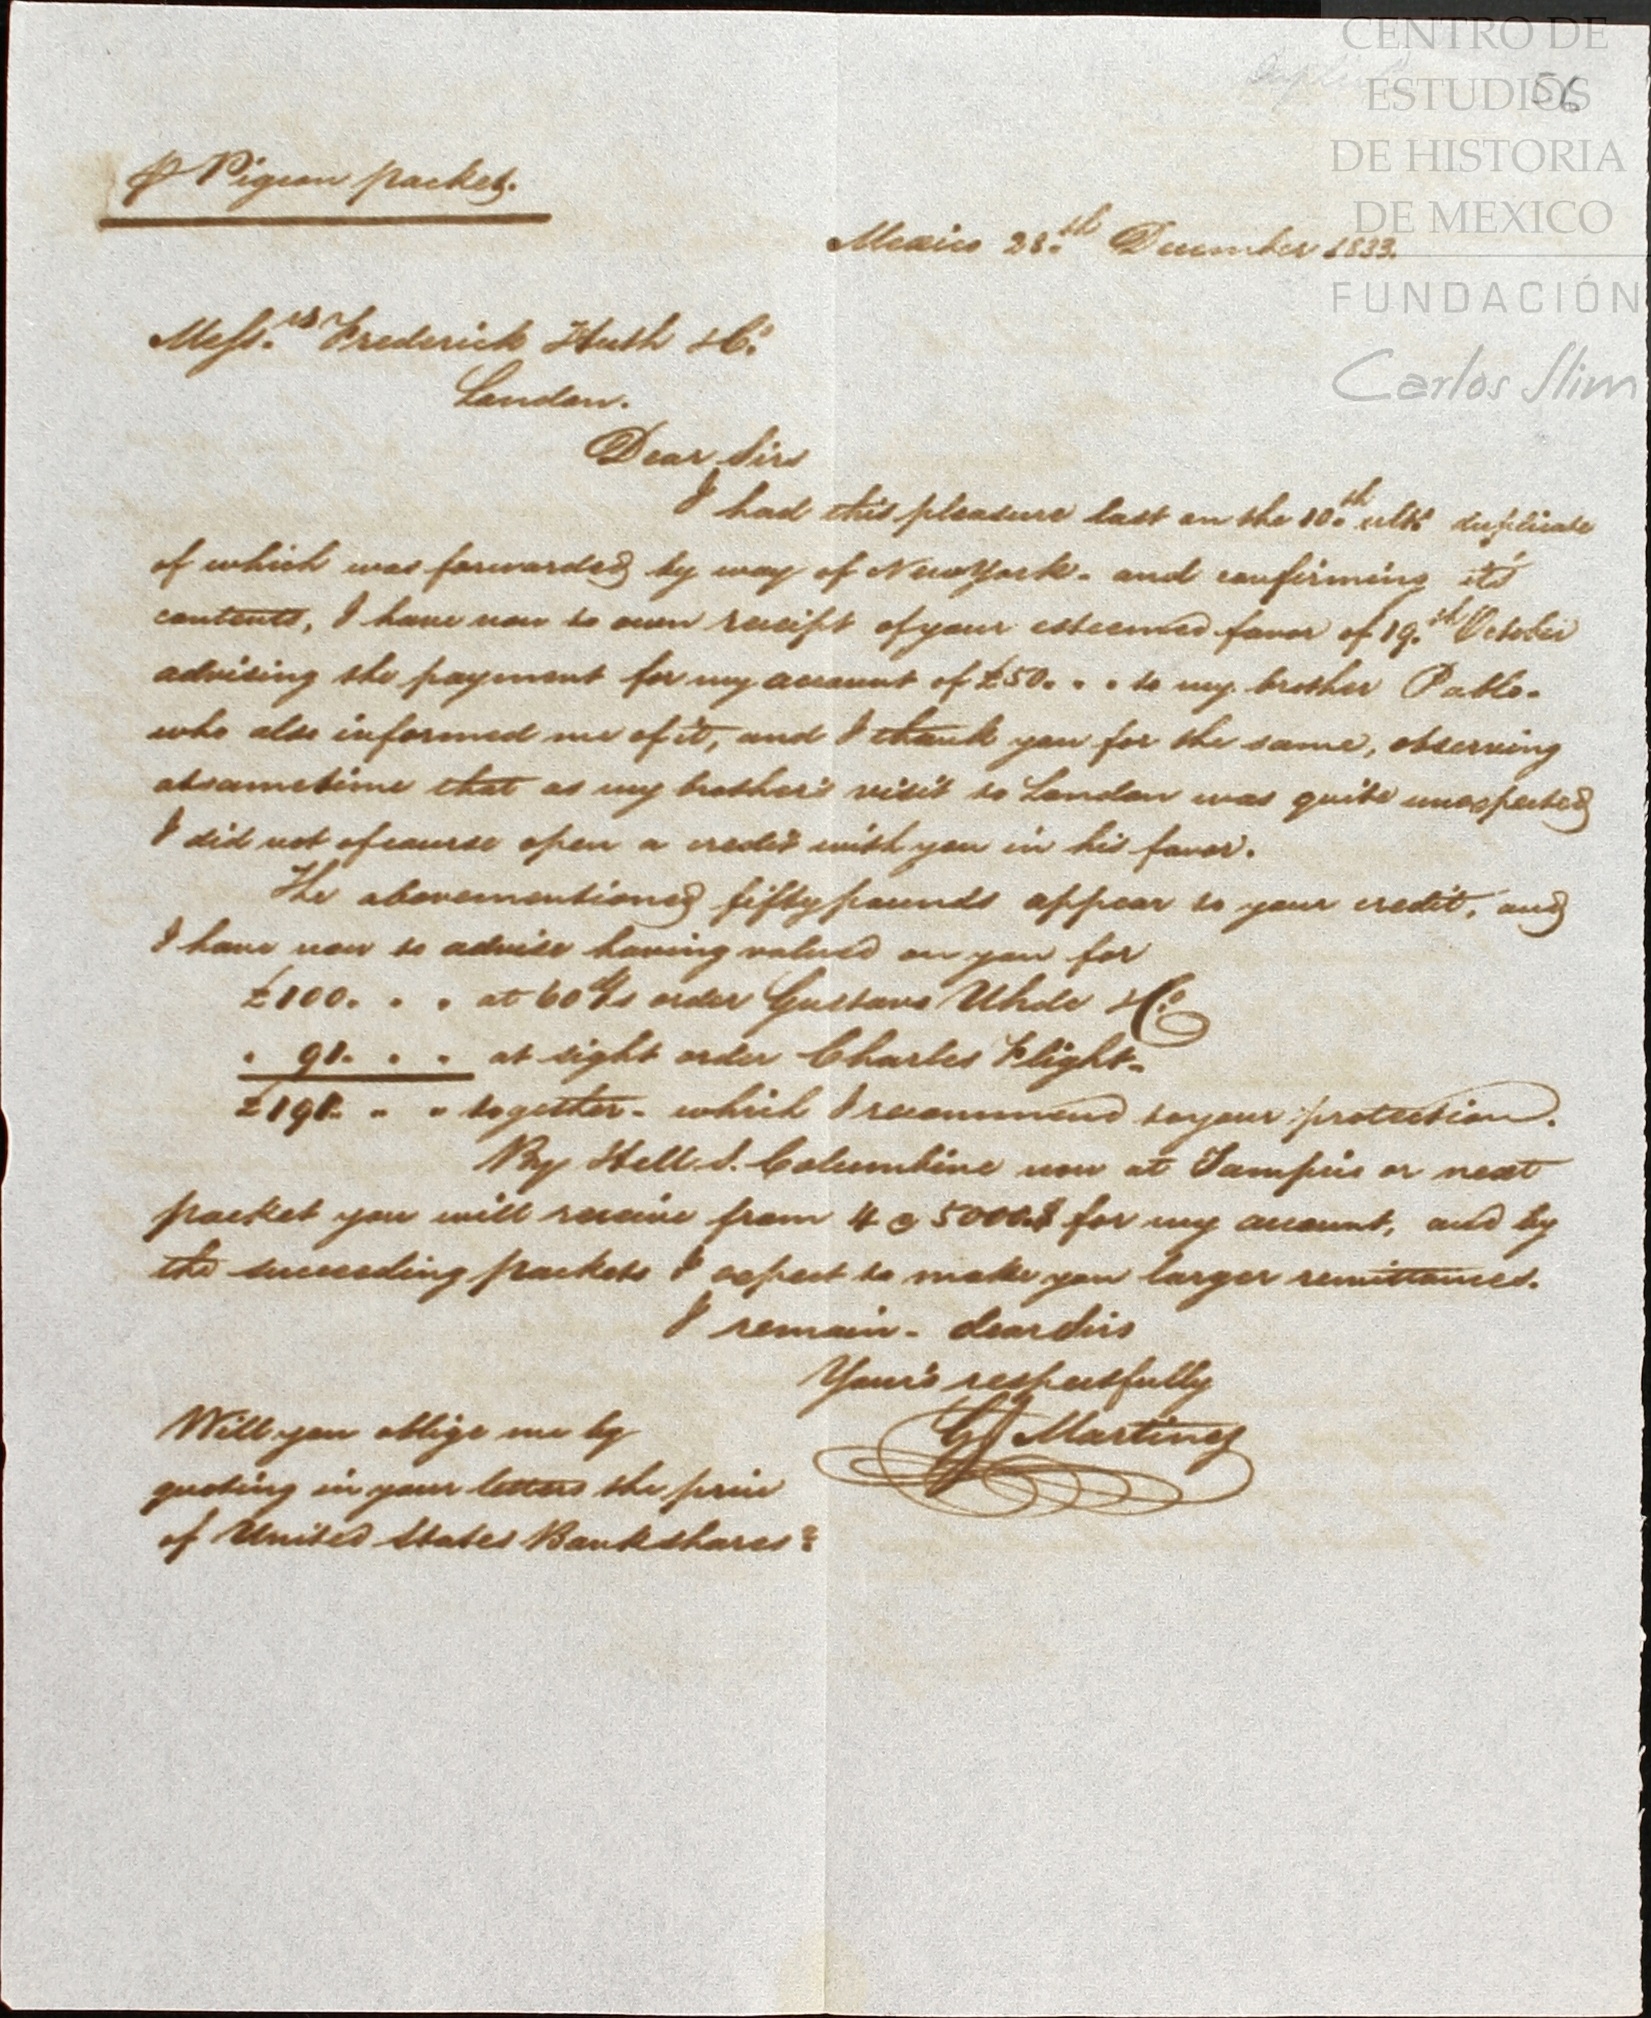 CENTRO DE
ESTUDIOS
DE HISTORIA
DE MEXICO
FUNDACIÓN
Carlos Slim
56
℘ Pigeon packet.
Mexico 28.th December 1833.
Mess.rs Frederick Huth & Co.
London.
Dear Sirs
I had this pleasure last on the 10.th ulto. duplicate
of which was forwarded by way of New York. and confirming it's
contents, I have now to own receipt of your esteemed favor of 19.th October
advising the payment for my account of £50. . . to my brother Pablo.
who also informed me of it, and I thank you for the same, observing
at sametime that as my brother's visit to London was quite unexpected
I did not of course open a credit with you in his favor.
The abovementioned fifty pounds appear to your credit, and
I have now to advise having valued on you for
£100. . . at 60 d/s order Gustavo Uhde & Co.
" 91. . . at sight order Charles Flight.
£191. " " together. which I recommend to your protection.
By H. M. S. Columbine now at Tampico or next
packet you will receive from 4 @ 5000.$ for my account, and by
the succeeding packets I expect to make you larger remittances.
I remain. dear Sirs
Your's respectfully
G J Martinez
Will you oblige me by
quoting in your letters the price
of United States Bank shares?